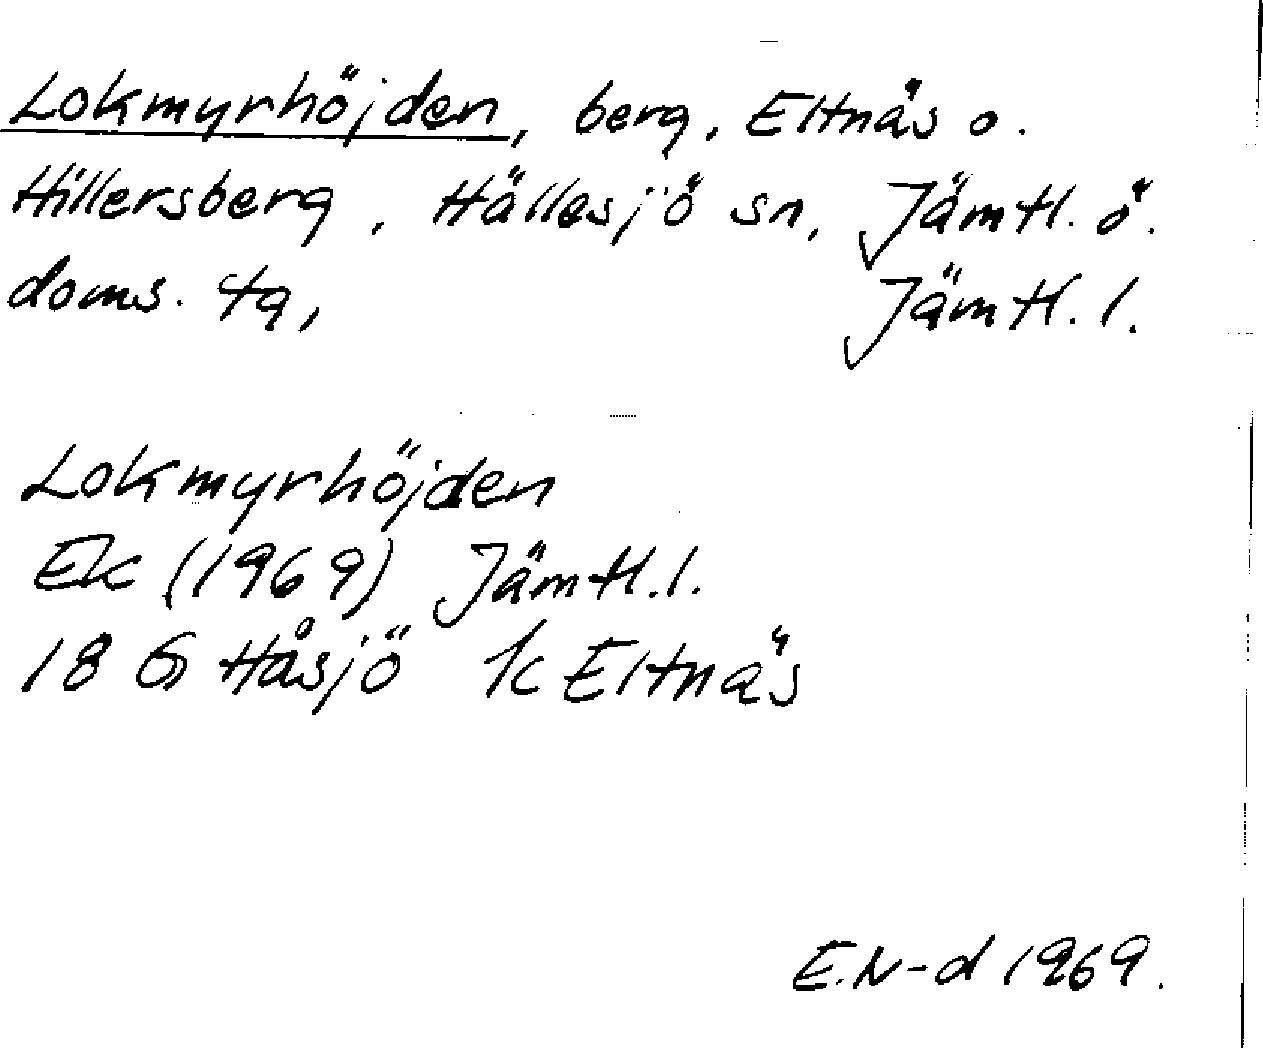 Lokmyrhöjden, berg, Eltnäs o.
Hillersberg, Hällesjö sn, Jämtl. ö.
doms. tg, Jämtl. l.
Lokmyrhöjden
Ek (1969) Jämtl. l.
18 G Håsjö 1c Eltnäs
E.N-d 1969.